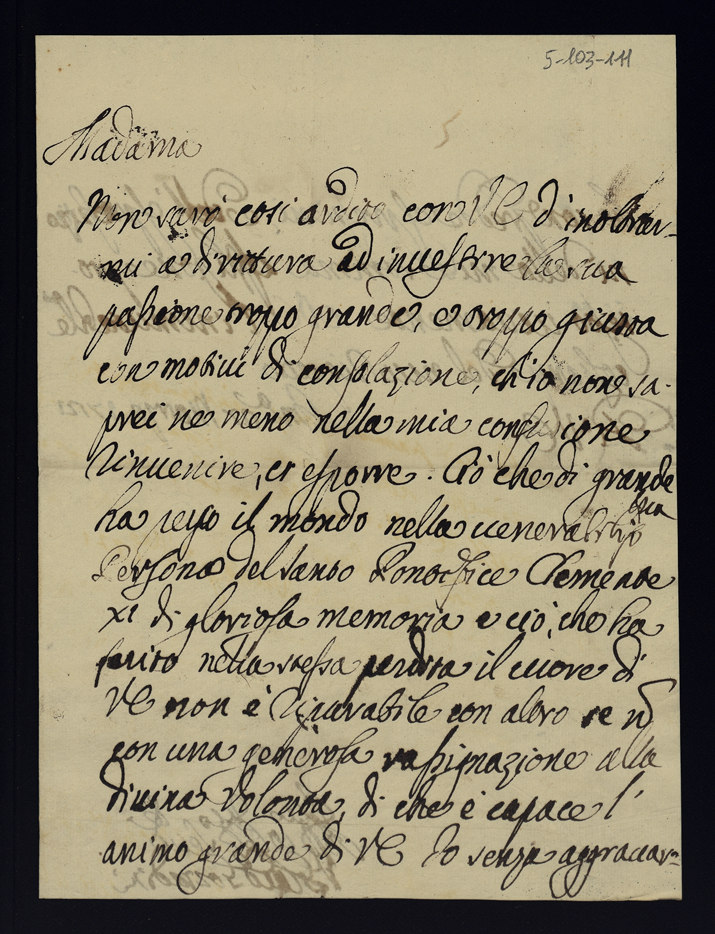 5-103-111
Madama
Non sarò così ardito con VE d'inoltrar-
mi a dirittura ad inuestire la sua
passione troppo grande, e troppo giusta
con motiui di consolazione, ch'io non sa-
prei ne meno nella mia confusione
rinuenire, et esporre. Ciò che di grande
ha perso il mondo nella uenerabilissima
Persona del Santo Pontefice Clemente
XI di gloriosa memoria e ciò, che ha
ferito nella stessa perdita il cuore di
VE non è riparabile con altro se nō
con una generosa rassignazione alla
diuina Volontà, di che è capace l'
animo grande di VE Io senza aggrauar-